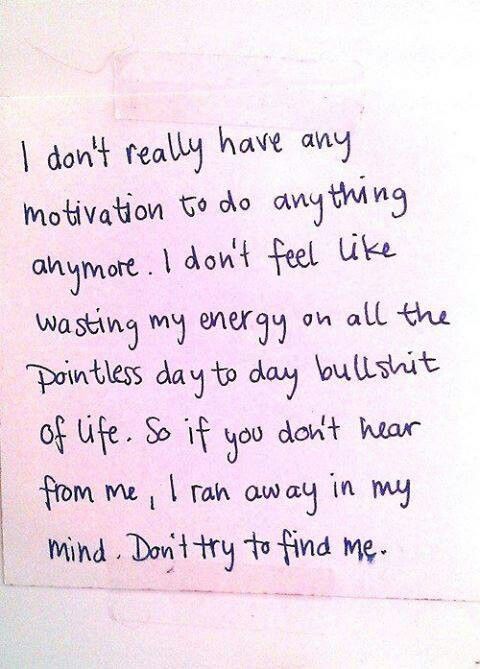 I don't really have any
motivation to do anything
anymore. I don't feel like
wasting my energy on all the
pointless day to day bullshit
of life. So if you don't hear
from me, I ran away in my
mind. Don't try to find me.